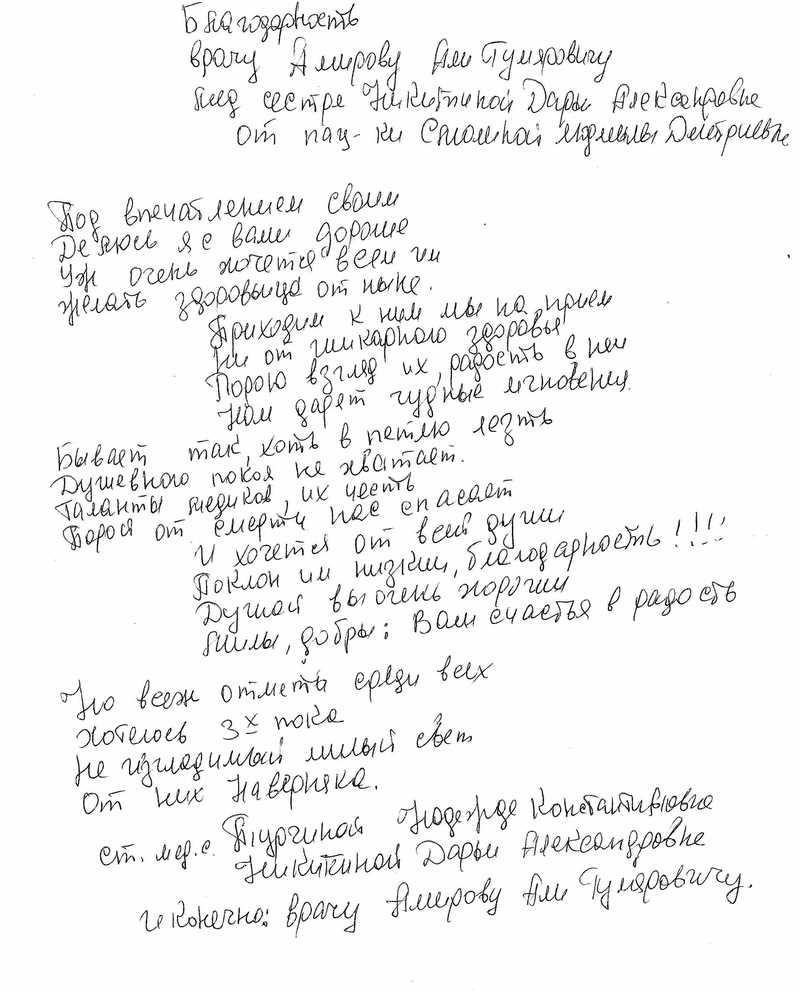 Благодарность
врачу Амирову Али Гумяровичу
мед сестре Никитиной Дарьи Александровне
от пац-ки Людмилы Дмитриевне
Под впечатлением своим
Делюсь я с вами дороше
Уж очень хочется всем им
желать здоровьица от ныне.
Приходим к ним мы на прием
Не от шикарного здоровья
Порою взгляд их, радость в нем
Нам дарет чудные мгновения.
Бывает так, хоть в петлю лезть
Душевного покоя не хватает.
Таланты медиков, их честь
Порой от смерти нас спасает
И хочется от всей души
Поклон им низким, благодарность!!!!
Душой вы очень хороши
Милы, добры: Вам счастья в радость
Но всеж отметь среди всех
Хотелось 3х пока
Не изгладимый милый свет
От них наверняка.
ст. мед. с. Надежде Константиновне
Никитиной Дарьи Александровне
и конечно: врачу Амирову Али Гумяровичу.